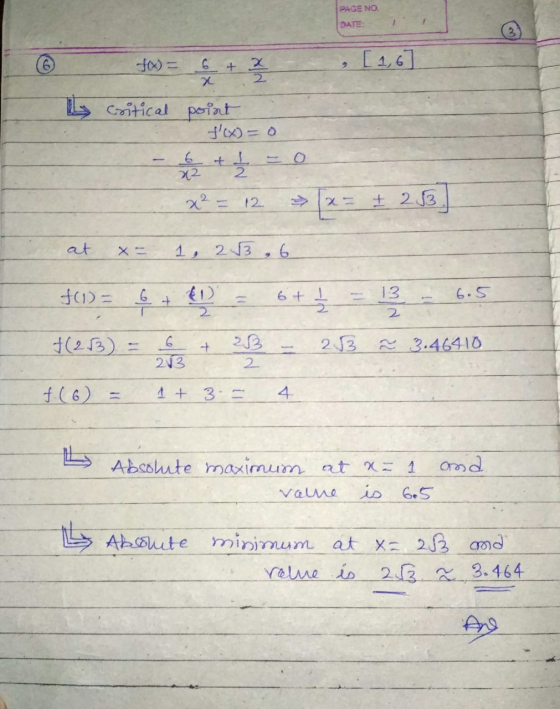 PAGE NO.
DATE: / /
3
6 f(x) = 6/x + x/2 , [1,6]
Critical point
f'(x) = 0
- 6/x² + 1/2 = 0
x² = 12 ⇒ [x = ± 2√3]
at x = 1, 2√3, 6
f(1) = 6/1 + (1)/2 = 6 + 1/2 = 13/2 = 6.5
f(2√3) = 6/2√3 + 2√3/2 = 2√3 ≈ 3.46410
f(6) = 1 + 3 = 4
Absolute maximum at x = 1 and
value is 6.5
Absolute minimum at x = 2√3 and
value is 2√3 ≈ 3.464
Ans